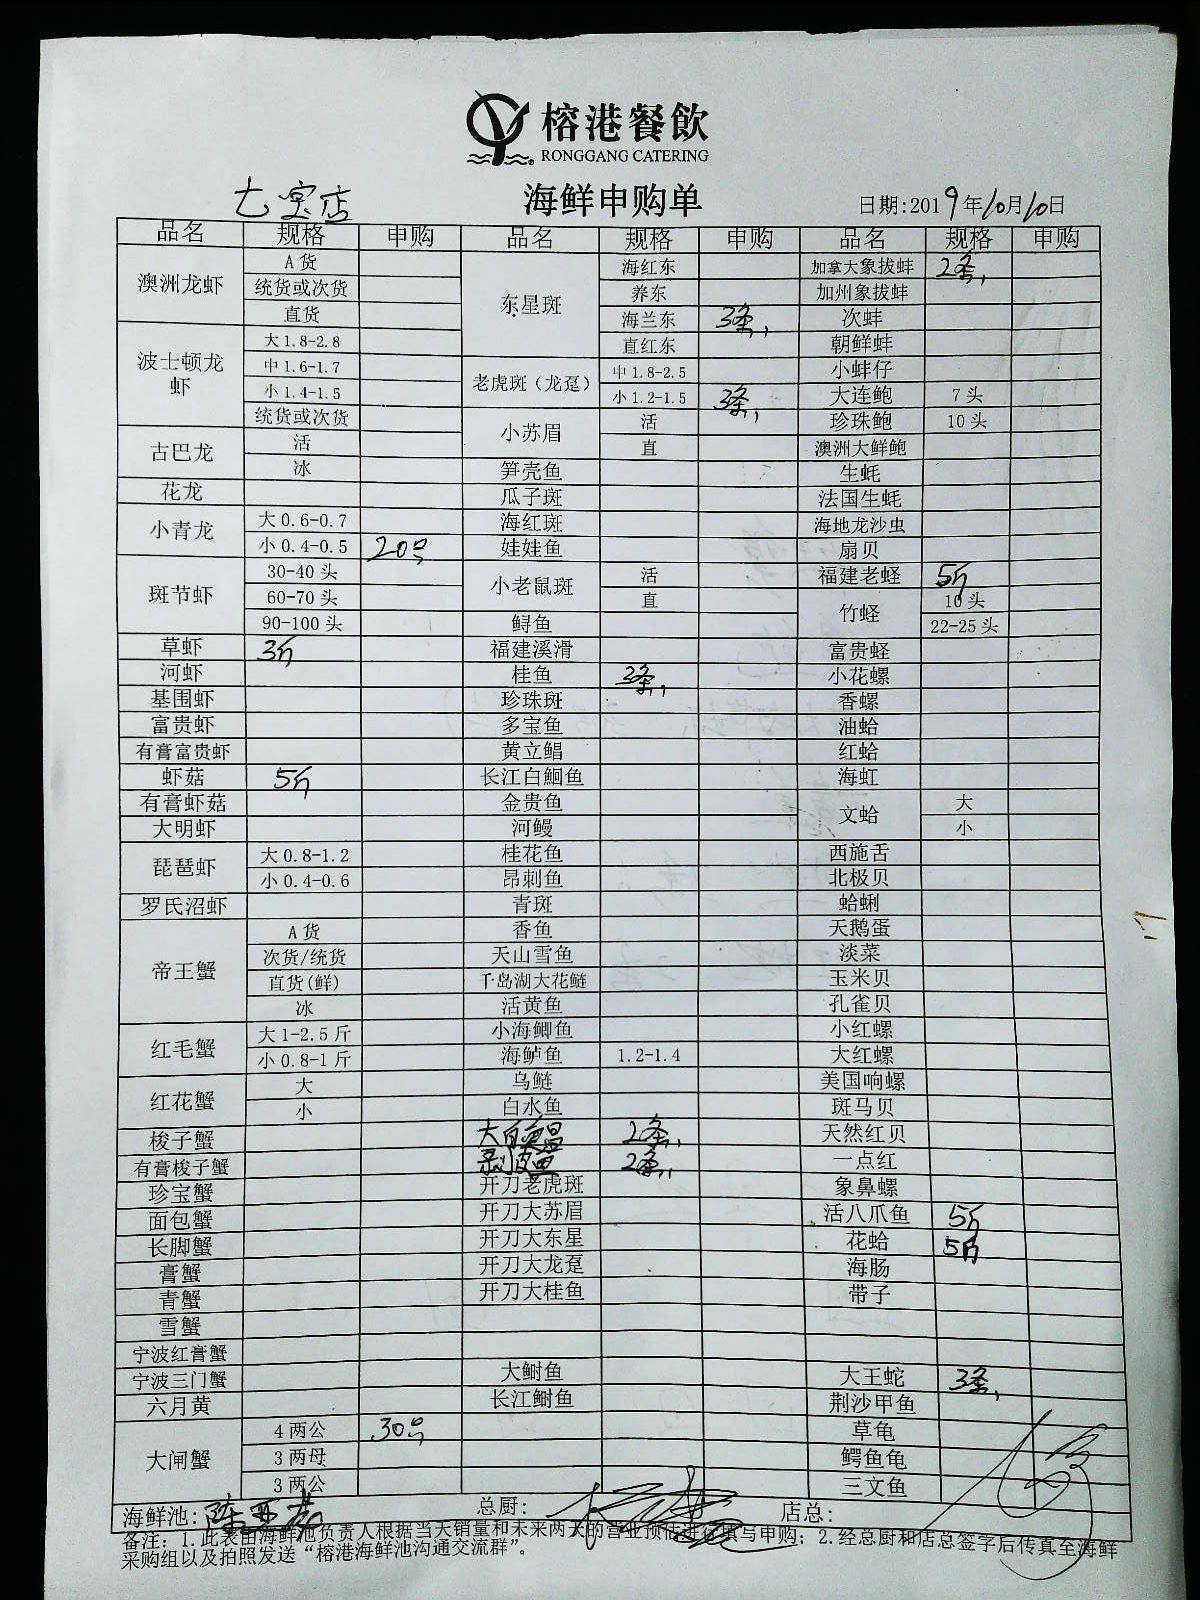 榕港餐飲
RONGGANG CATERING
七宝店 海鲜申购单 日期:2019年10月10日
品名 规格 申购 品名 规格 申购 品名 规格 申购
澳洲龙虾 A货 东星斑 海红东 加拿大象拔蚌 2条,
统货或次货 养东 加州象拔蚌
直货 海兰东 3条, 次蚌
波士顿龙虾 大1.8-2.8 直红东 朝鲜蚌
中1.6-1.7 老虎斑（龙趸） 中1.8-2.5 小蚌仔
小1.4-1.5 小1.2-1.5 3条, 大连鲍 7头
统货或次货 小苏眉 活 珍珠鲍 10头
古巴龙 活 直 澳洲大鲜鲍
冰 笋壳鱼 生蚝
花龙 瓜子斑 法国生蚝
小青龙 大0.6-0.7 海红斑 海地龙沙虫
小0.4-0.5 20只 娃娃鱼 扇贝
斑节虾 30-40头 小老鼠斑 活 福建老蛏 5斤
60-70头 直 竹蛏 10头
90-100头 鲟鱼 22-25头
草虾 3斤 福建溪滑 富贵蛏
河虾 桂鱼 3条, 小花螺
基围虾 珍珠斑 香螺
富贵虾 多宝鱼 油蛤
有膏富贵虾 黄立鲳 红蛤
虾菇 5斤 长江白鮰鱼 海虹
有膏虾菇 金贵鱼 文蛤 大
大明虾 河鳗 小
琵琶虾 大0.8-1.2 桂花鱼 西施舌
小0.4-0.6 昂刺鱼 北极贝
罗氏沼虾 青斑 蛤蜊
帝王蟹 A货 香鱼 天鹅蛋
次货/统货 天山雪鱼 淡菜
直货(鲜) 千岛湖大花鲢 玉米贝
冰 活黄鱼 孔雀贝
红毛蟹 大1-2.5斤 小海鲫鱼 小红螺
小0.8-1斤 海鲈鱼 1.2-1.4 大红螺
红花蟹 大 乌鲢 美国响螺
小 白水鱼 斑马贝
梭子蟹 大白鲳 2条, 天然红贝
有膏梭子蟹 剥皮鱼 2条, 一点红
珍宝蟹 开刀老虎斑 象鼻螺
面包蟹 开刀大苏眉 活八爪鱼 5斤
长脚蟹 开刀大东星 花蛤 5斤
膏蟹 开刀大龙趸 海肠
青蟹 开刀大桂鱼 带子
雪蟹
宁波红膏蟹
宁波三门蟹 大鲥鱼 大王蛇 3条,
六月黄 长江鲥鱼 荆沙甲鱼
大闸蟹 4两公 30只 草龟
3两母 鳄鱼龟
3两公 三文鱼
海鲜池: 总厨: 店总:
备注: 1.此表由海鲜池负责人根据当天销量和未来两天的营业预估进行填写申购; 2.经总厨和店总签字后传真至海鲜
采购组以及拍照发送“榕港海鲜池沟通交流群”。